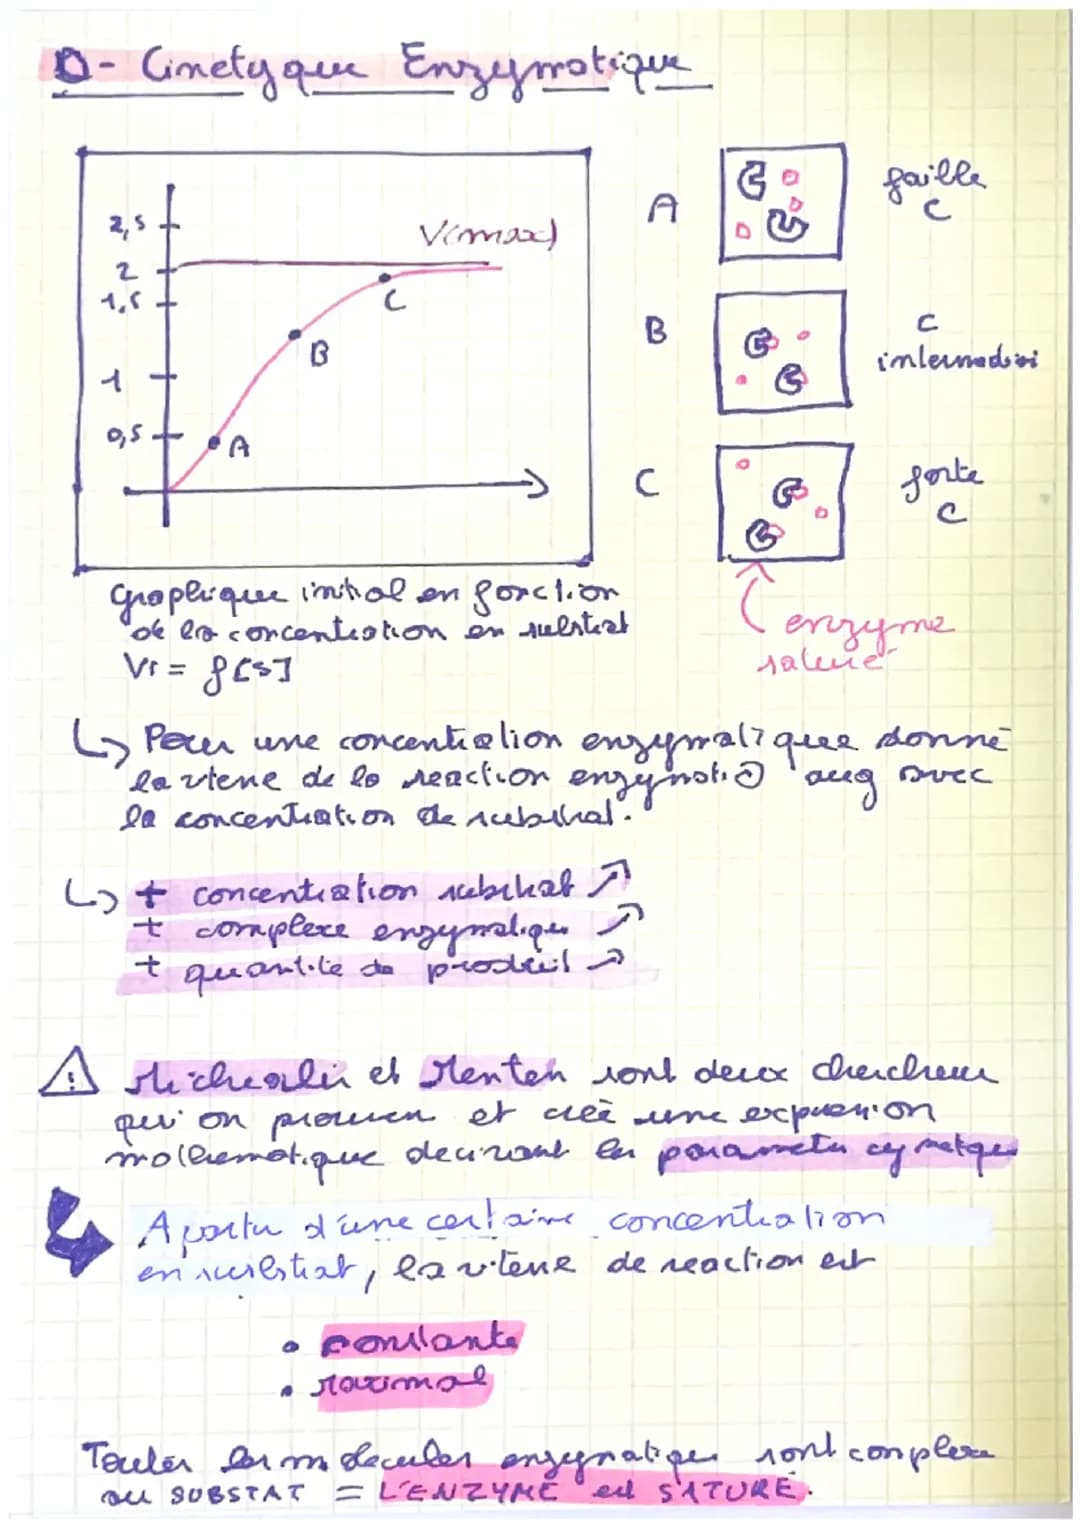 D- Cinetyque Enzymatique
2,5
2
1,5
1
0,5
V(max)
A
B
C
A
faible
C
B
C
intermediai
C
forte
C
enzyme
saturé
Graphique initial en fonction
de la concentration en substrat
Vi = f[S]
↳ Pour une concentration enzymatique donné
la vitesse de la reaction enzymatiq aug avec
la concentration de substrat.
↳ + concentration substrat ↗
+ complexe enzymatique ↗
+ quantité de produit ↗
⚠ Michealis et Menten sont deux chercheur
qui on prouver et créé une expression
mathematique decrivant les parametre cymetque
A partir d'une certaine concentration
en substrat, la vitesse de reaction est
• constante
• maximal
Toutes les molecules enzymatique sont complexe
au SUBSTAT = L'ENZYME est SATURÉ.